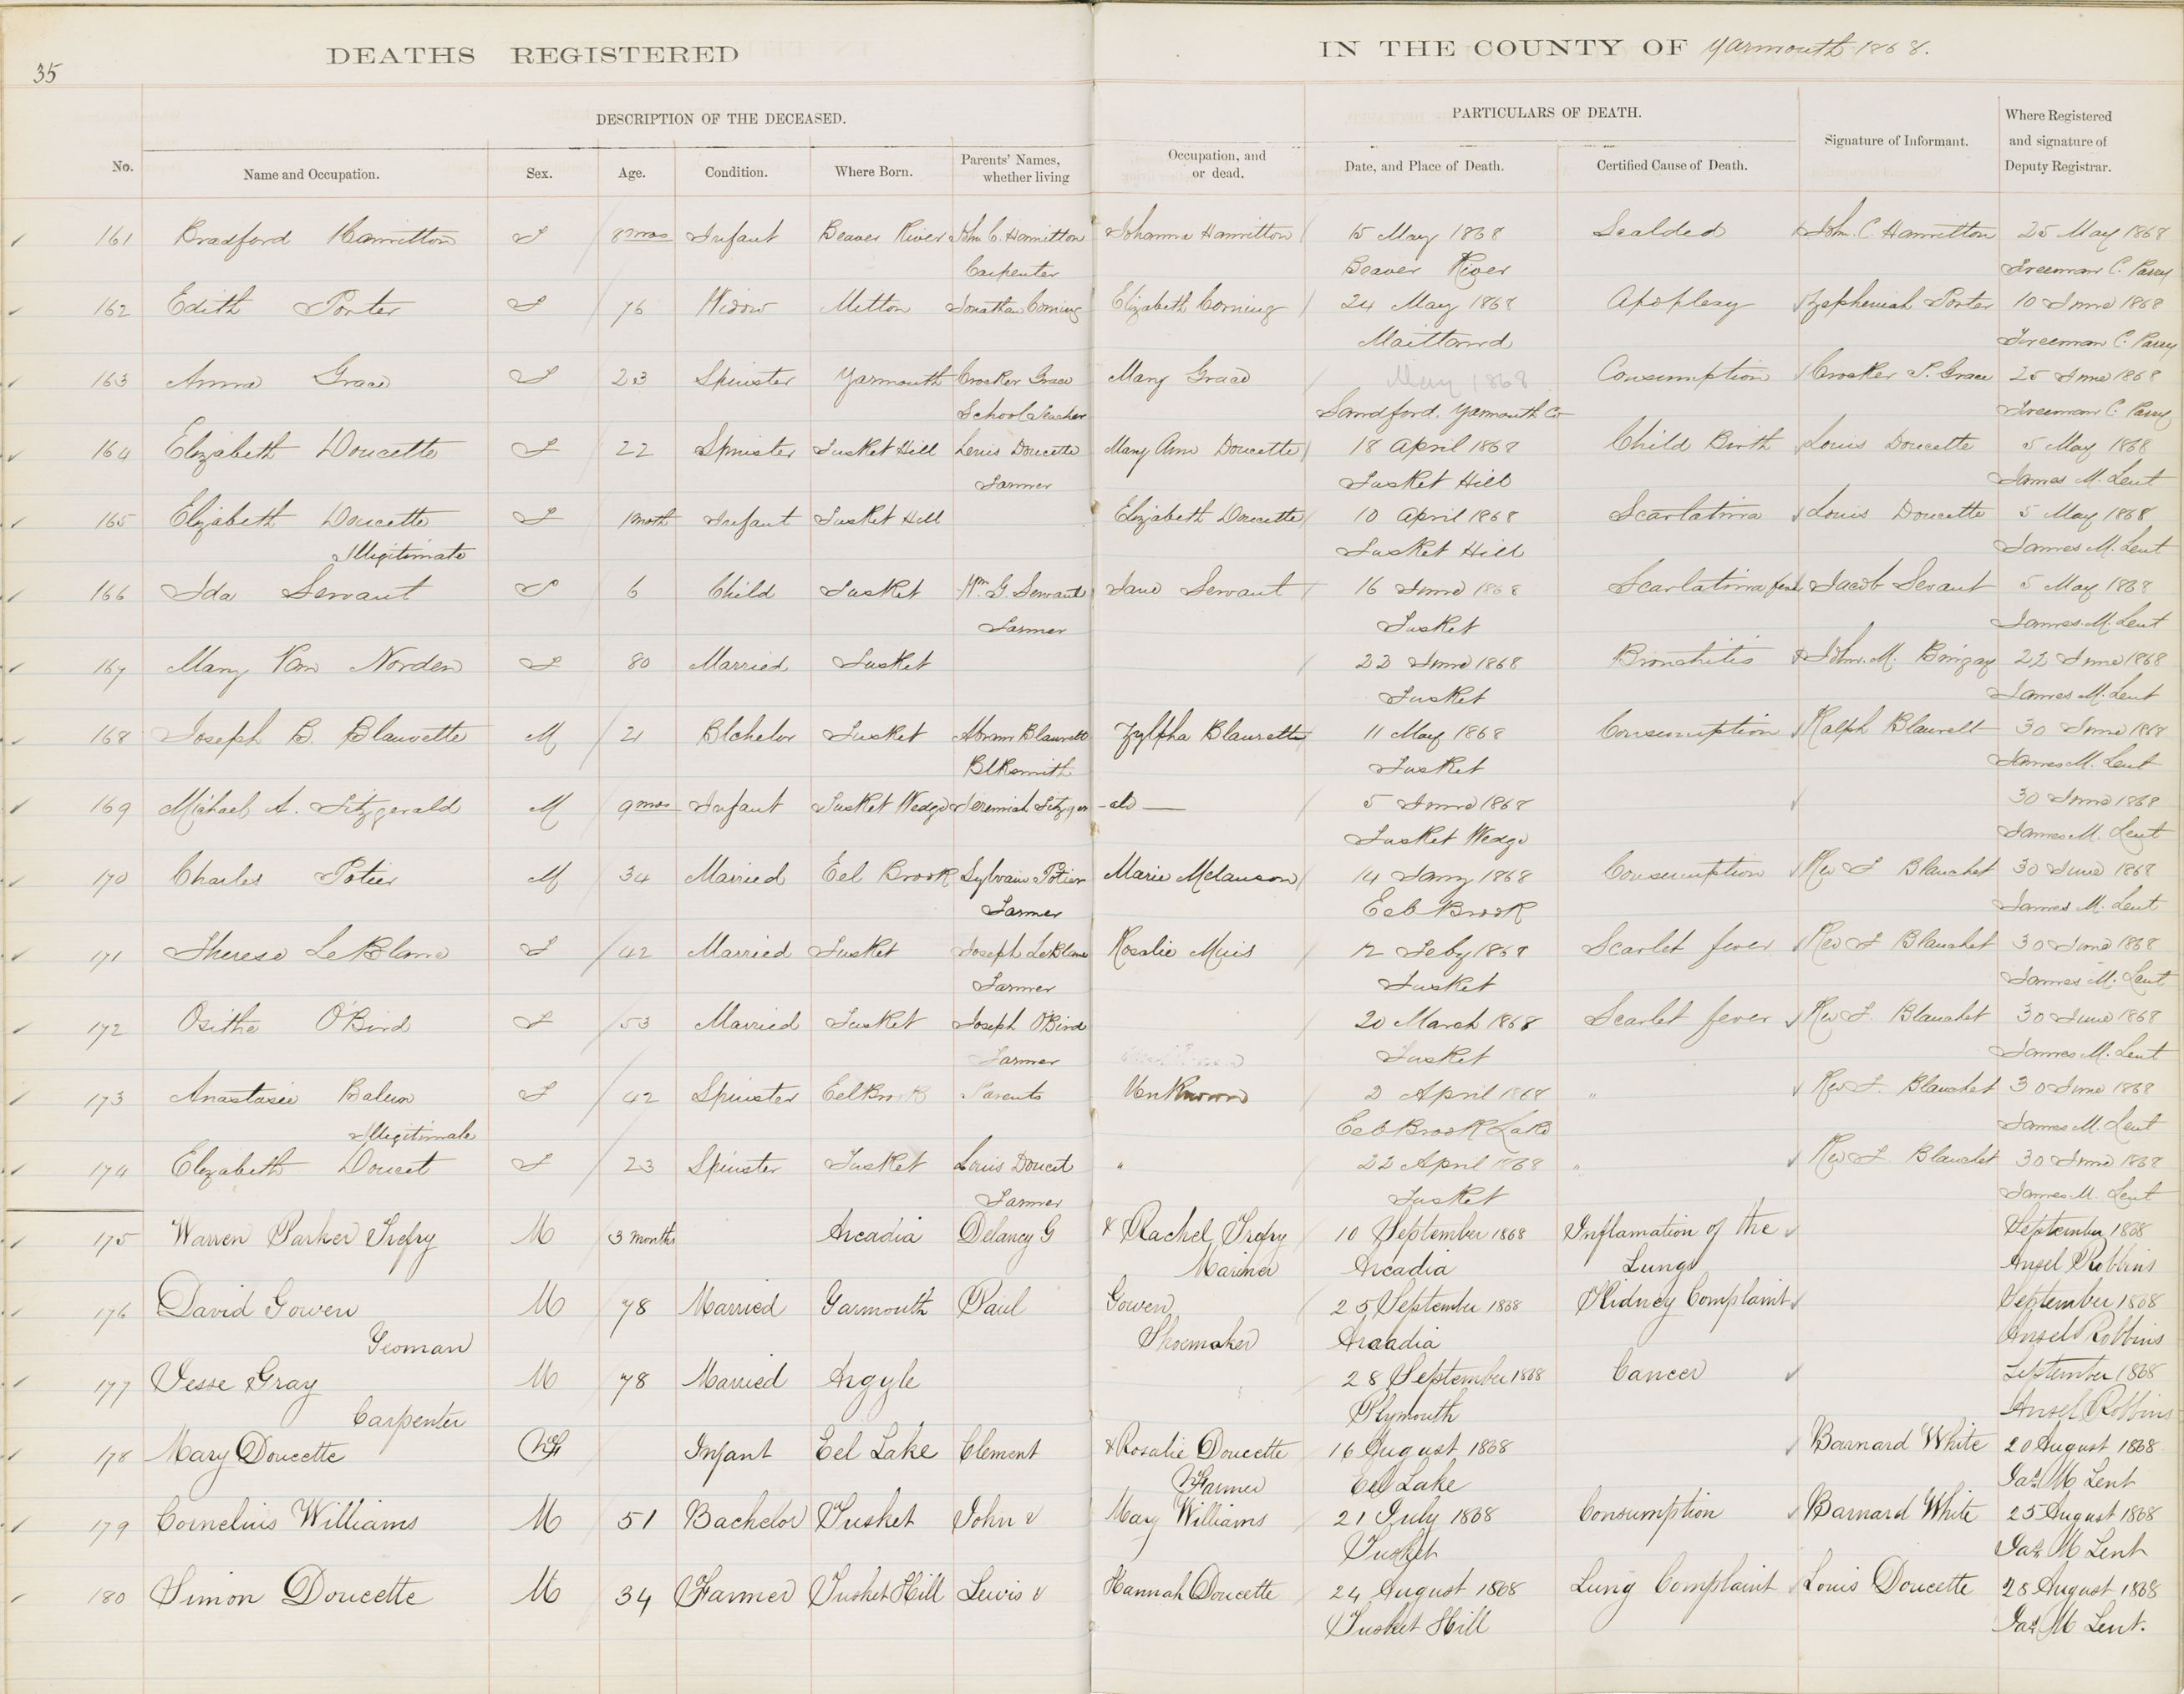 35
DEATHS REGISTERED IN THE COUNTY OF Yarmouth 1868.
DESCRIPTION OF THE DECEASED. PARTICULARS OF DEATH.
No. Name and Occupation. Sex. Age. Condition. Where Born. Parents' Names, whether living Occupation, and or dead. Date, and Place of Death. Certified Cause of Death. Signature of Informant. Where Registered and signature of Deputy Registrar.
161 Bradford Hamilton F 8 mos Infant Beaver River John C. Hamilton Johanna Hamilton 15 May 1868 Scalded John. C. Hamilton 25 May 1868
Carpenter Beaver River Freeman C. Parry
162 Edith Porter F 76 Widow Milton Jonathan Corning Elizabeth Corning 24 May 1868 Apoplexy Zepheniah Porter 10 June 1868
Maitland Freeman C. Parry
163 Anna Grace F 23 Spinster Yarmouth Crocker Grace Mary Grace May 1868 Consumption Crosker P. Grace 25 June 1868
School Teacher Sandford. Yarmouth Co Freeman C. Parry
164 Elizabeth Doucette F 22 Spinster Tusket Hill Lewis Doucette Mary Ann Doucette 18 April 1868 Child Birth Louis Doucette 5 May 1868
Farmer Tusket Hill James M. Lent
165 Elizabeth Doucette F 1 month Infant Tusket Hill Elizabeth Doucette 10 April 1868 Scarlatina Louis Doucette 5 May 1868
Illigitimate Tusket Hill James M. Lent
166 Ida Servant F 6 Child Tusket Wm. G. Servant Jane Servant 16 June 1868 Scarlatina Jacob Sevant 5 May 1868
Farmer Tusket James. M. Lent
167 Mary Van Norden F 80 Married Tusket 22 June 1868 Bronchitis John. M. Bingay 22 June 1868
Tusket James M. Lent
168 Joseph B. Blauvette M 21 Blchelor Tusket Abram Blauvett Zylpha Blauvette 11 May 1868 Consumption Ralph Blauvelt 30 June 1868
Blksmith Tusket James M. Lent
169 Michael A. Fitzgerald M 9 mos Infant Tusket Wedge Jeremiah Fitzger -ald 5 June 1868 30 June 1868
Tusket Wedge James M. Lent
170 Charles Potier M 34 Married Eel Brook Sylvain Potier Marie Melanson 14 Jany 1868 Consumption Rev F Blanchet 30 June 1868
Farmer Eel Brook James M. Lent
171 Therese LeBlanc F 42 Married Tusket Joseph LeBlanc Rosalie Muis 12 Feby 1868 Scarlet fever Rev F Blanchet 30 June 1868
Farmer Tusket James M. Lent
172 Osithe O'Bird F 53 Married Tusket Joseph O'Bird 20 March 1868 Scarlet fever Rev F. Blanchet 30 June 1868
Farmer Tusket James M. Lent
173 Anastasie F 42 Spinster Eel Brook Parents Unknown 2 April 1868 " Rev F. Blanchet 30 June 1868
Illigitimate Eel Brook Lake James M. Lent
174 Elizabeth Doucet F 23 Spinster Tusket Louis Doucet " 22 April 1868 " Rev F. Blanchet 30 June 1868
Farmer Tusket James M. Lent
175 Warren Parker Trefry M 3 months Arcadia Delancy G & Rachel Trefry 10 September 1868 Inflamation of the September 1868
Mariner Arcadia Lungs Ansel Robbins
176 David Gowen M 78 Married Yarmouth Paul Gowen 25 September 1868 Kidney Complaint September 1868
Yeoman Shoemaker Arcadia Ansel Robbins
177 Jesse Gray M 78 Married Argyle 28 September 1868 Cancer September 1868
Carpenter Plymouth Ansel Robbins
178 Mary Doucette F Infant Eel Lake Clement & Rosalie Doucette 16 August 1868 Barnard White 20 August 1868
Farmer Eel Lake Jas M Lent
179 Cornelius Williams M 51 Bachelor Tusket John & Mary Williams 21 July 1868 Consumption Barnard White 25 August 1868
Tusket Jas M Lent
180 Simon Doucette M 34 Farmer Tusket Hill Lewis & Hannah Doucette 24 August 1868 Lung Complaint Louis Doucette 28 August 1868
Tusket Hill Jas M Lent.